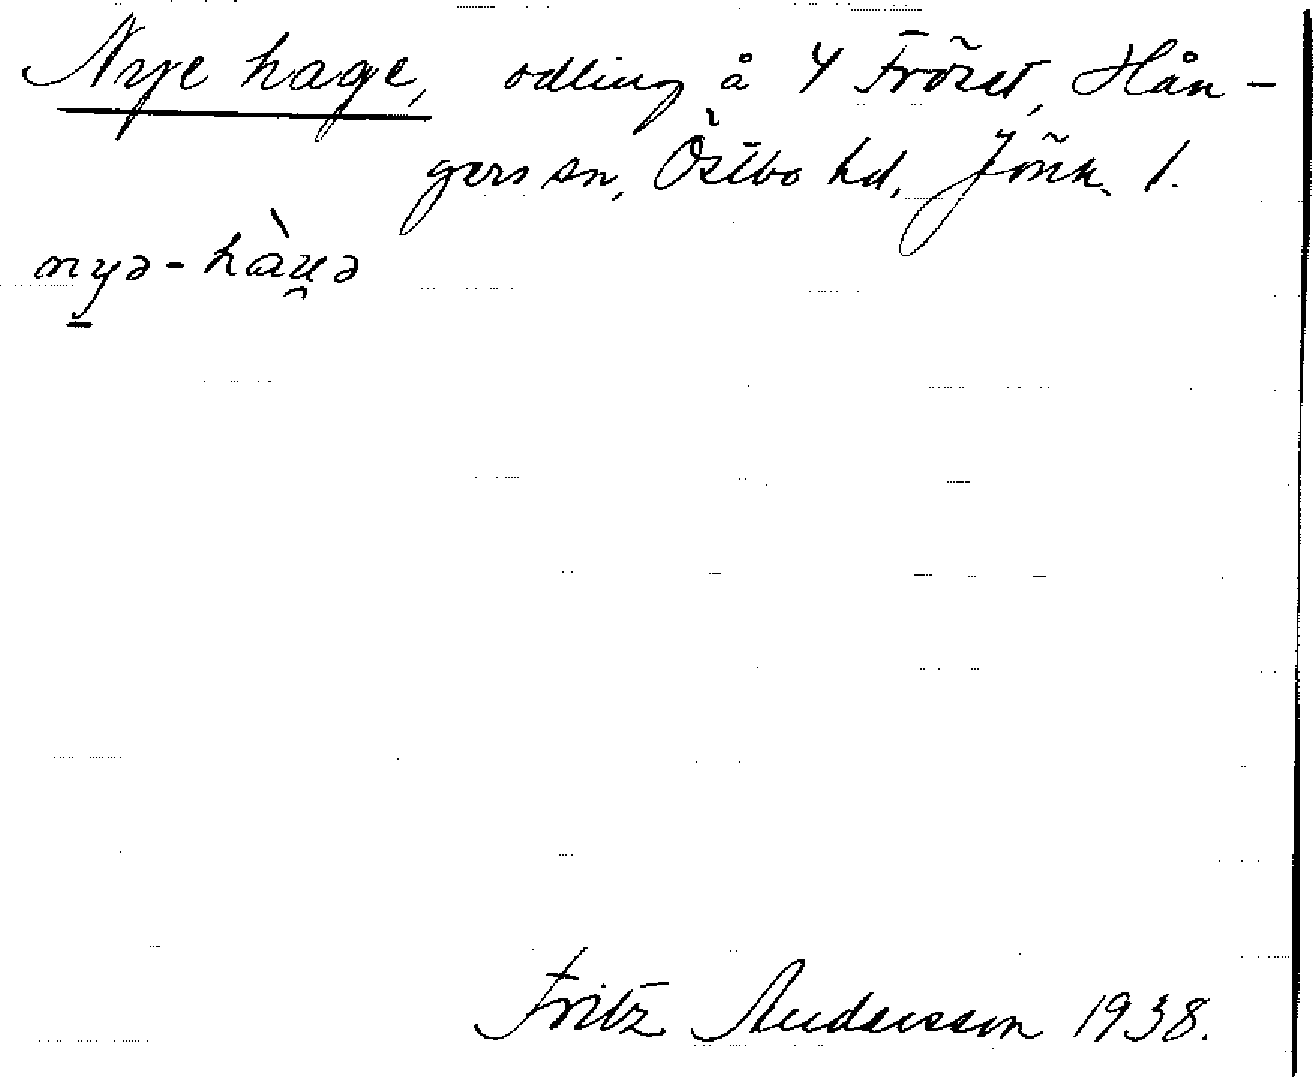 Nye hage, odling å 4 Fröset, Hån-
gers sn, Östbo hd, Jönk. l.
nyə-hàu̯ə
Fritz Andersson 1938.